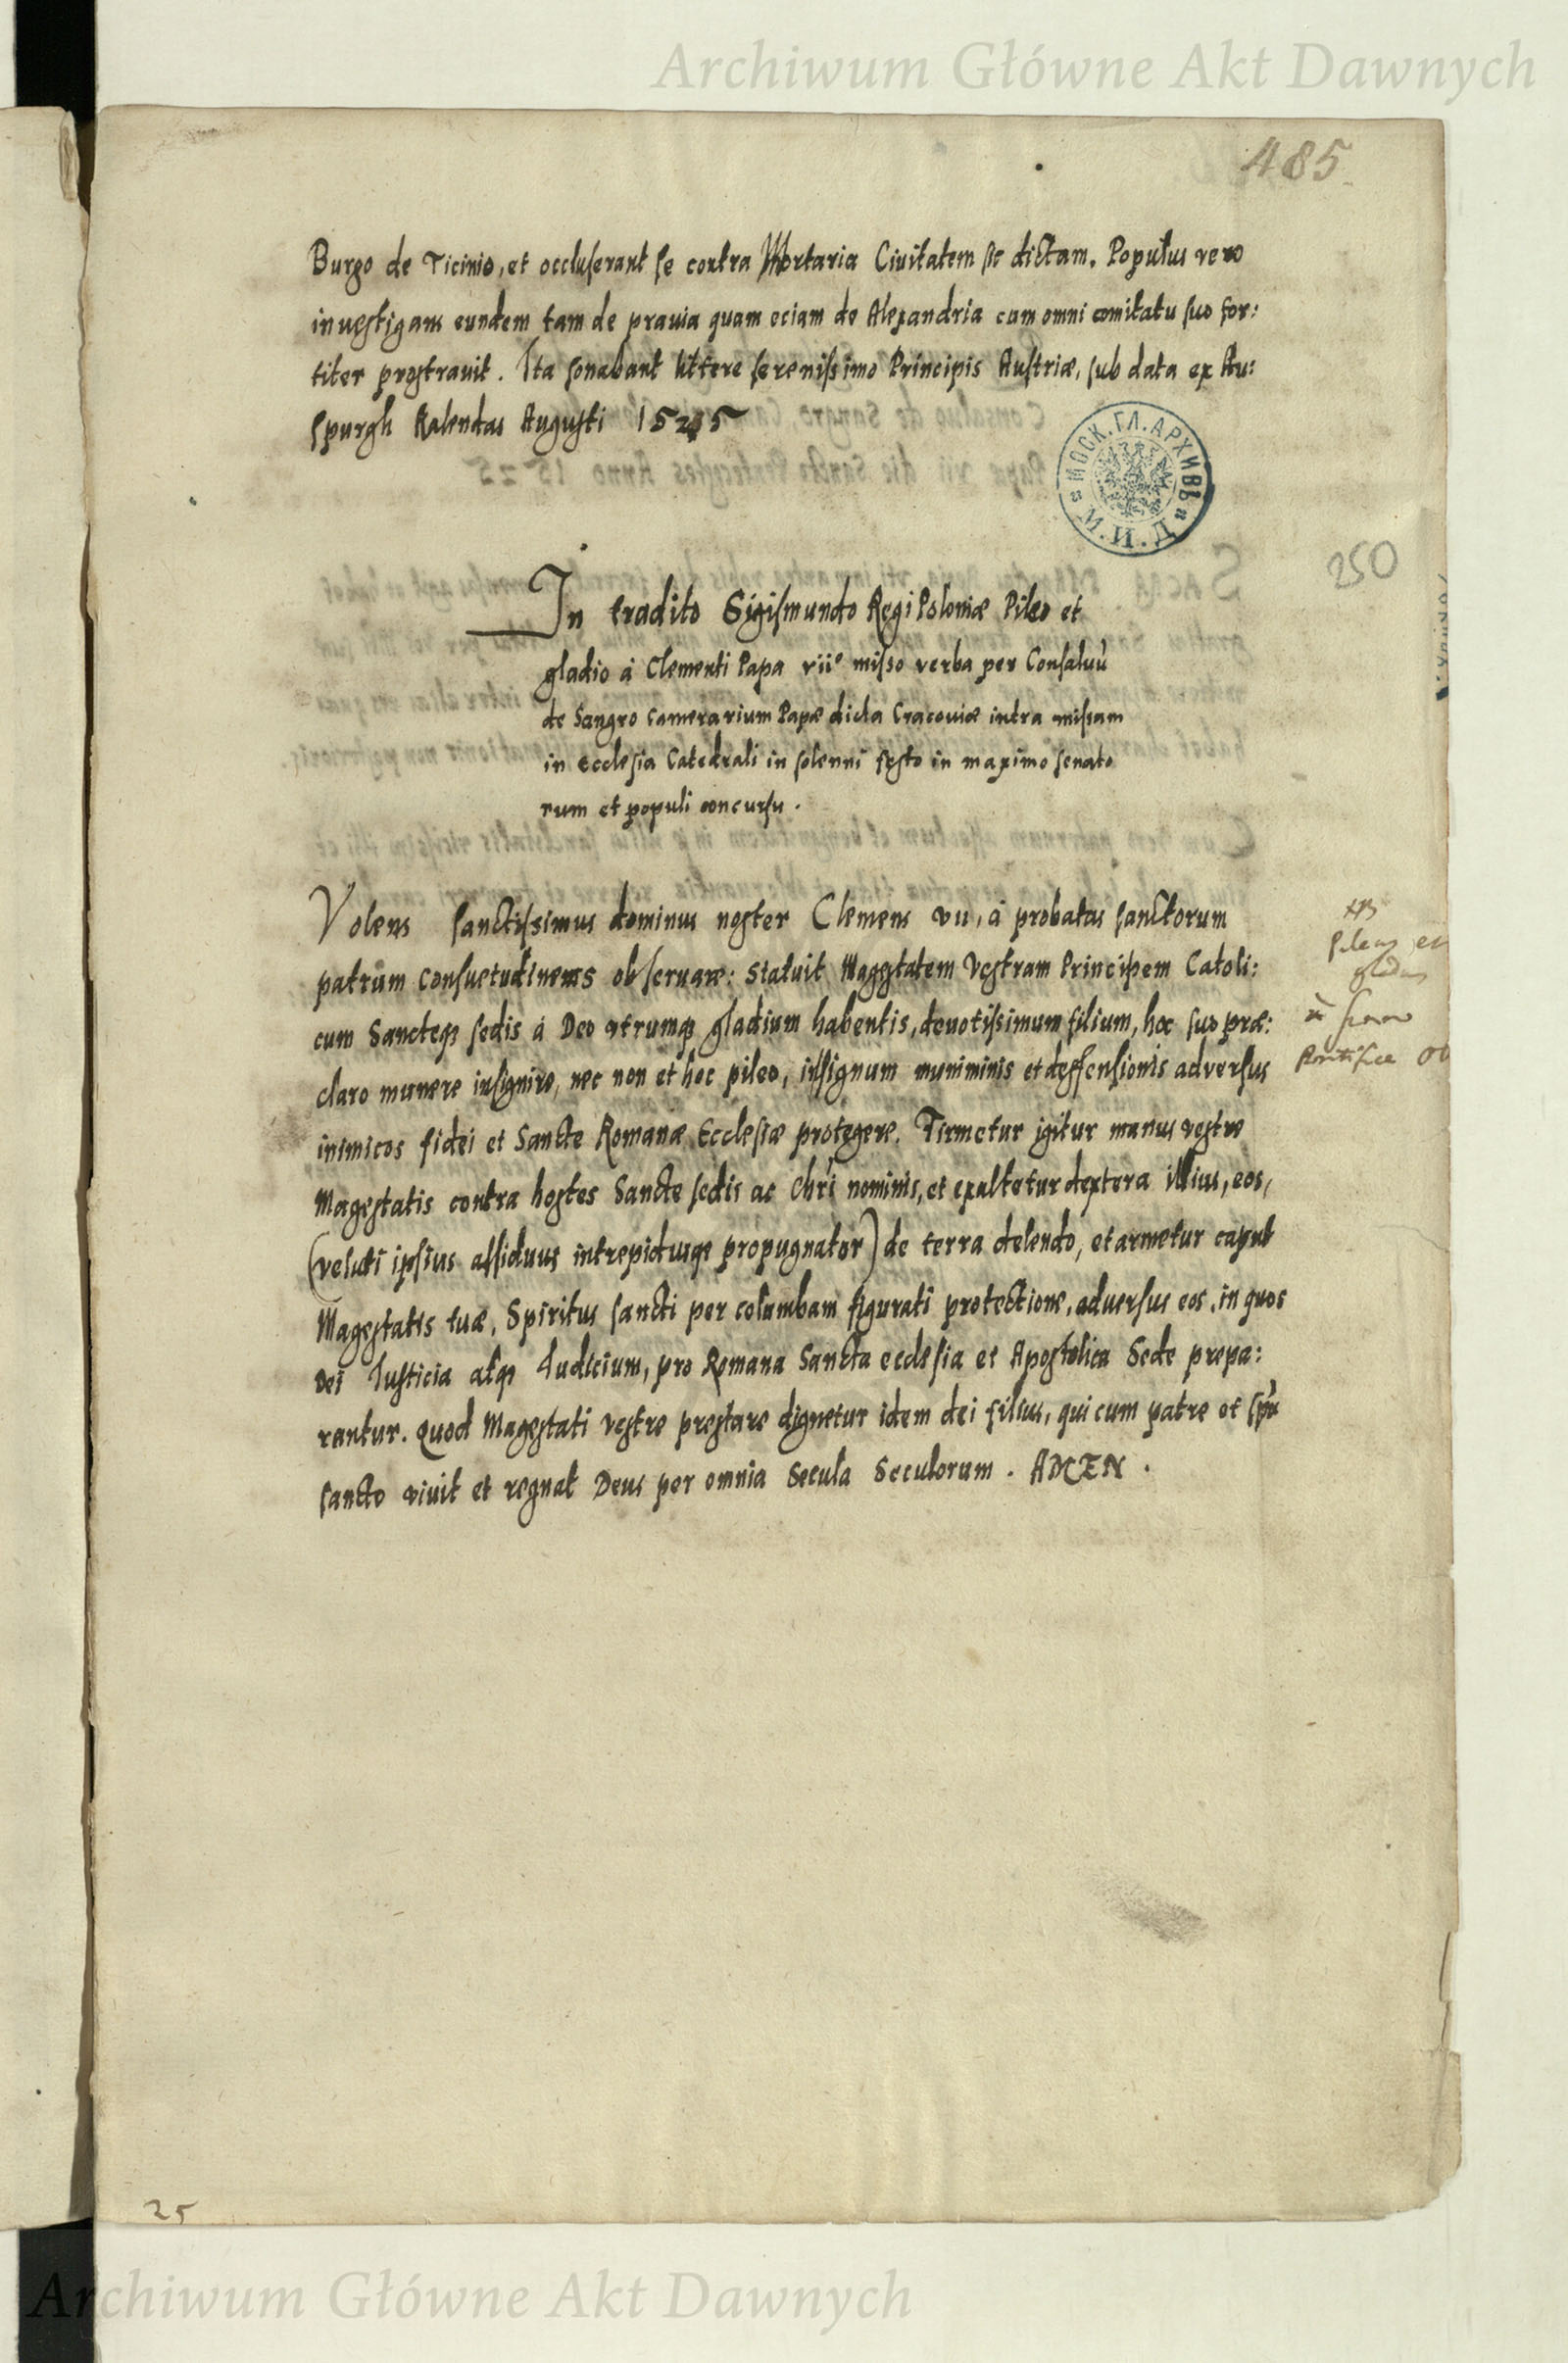 Archiwum Główne Akt Dawnych
485
Burgo de Ticinio, et occluserant se contra Mortaria Civitatem sic dictam. Populus vero
investigans eundem tam de pravia quam eciam de Alexandria cum omni comitatu suo for:
titer prostravit. Ita sonabant littere serenissimo Principis Austriæ, sub data ex Au:
spurgh Kalendas Augusti 1525
МОСК. ГЛ. АРХИВЪ М. И. Д.
250
In tradito Sigismundo Regi Poloniæ Pileo et
gladio á Clementi Papa vii° misso verba per Consalvu
de Sangro Camerarium Papæ dicta Cracoviæ intra missam
in Ecclesia Catedrali in solenni festo in maximo senato
rum et populi concursu.
Volens sanctissimus dominus noster Clemens vii, á probatas sanctorum
patrum consuetudines observare: statuit Magestatem Vestram Principem Catoli:
cum Sanctęq; sedis á Deo utrumq; gladium habentis, devotissimum filium, hoc suo præ:
claro munere insignire, nec non et hoc pileo, in signum muniminis et deffensionis adversus
inimicos fidei et Sancte Romanæ Ecclesiæ protegere. Firmetur igitur manus vestre
Magestatis contra hostes Sancte sedis ac Chri nominis, et exaltetur dextera illius, eos,
(veluti ipsius assiduus intrepidusq; propugnator) de terra delendo, et armetur caput
Magestatis tuæ, Spiritus sancti per columbam figurati protectione, adversus eos, in quos
Dei Iusticia atq; Iudicium, pro Romana Sancta ecclesia et Apostolica Sede prepa:
rantur. Quod Magestati vestre prestare dignetur idem dei filius, qui cum patre et spu
sancto vivit et regnat Deus per omnia Secula Seculorum. AMEN.
Pileus et
gladius
à summo
Pontifice
25
Archiwum Główne Akt Dawnych